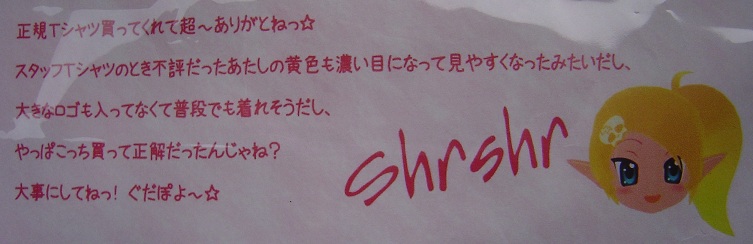 正規Tシャツ買ってくれて超～ありがとねっ☆
スタッフTシャツのとき不評だったあたしの黄色も濃い目になって見やすくなったみたいだし、
大きなロゴも入ってなくて普段でも着れそうだし、
やっぱこっち買って正解だったんじゃね？
大事にしてねっ！ ぐだぽよ～☆
shrshr